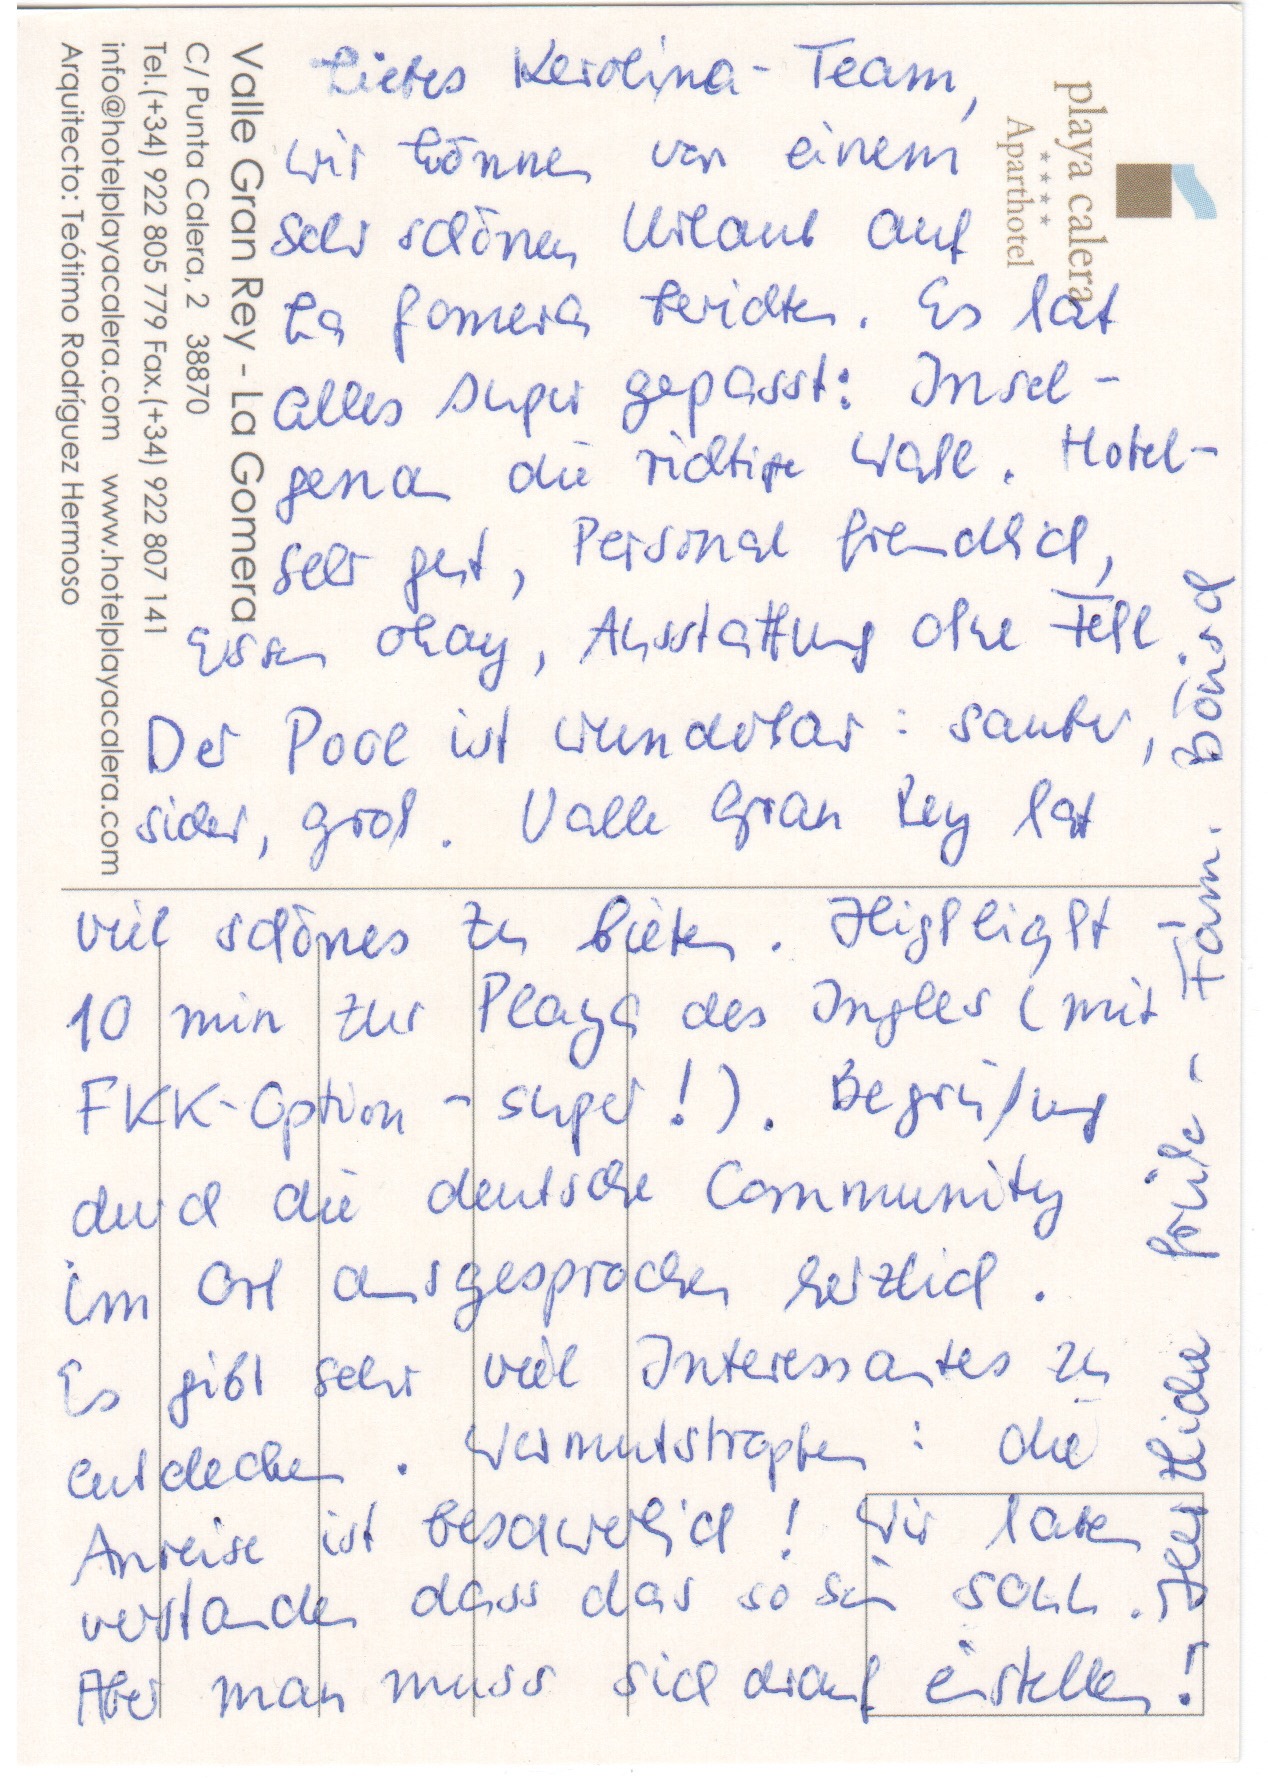 playa calera
★★★★
Aparthotel
Valle Gran Rey - La Gomera
C/ Punta Calera, 2 38870
Tel.(+34) 922 805 779 Fax.(+34) 922 807 141
info@hotelplayacalera.com www.hotelplayacalera.com
Arquitecto: Teótimo Rodríguez Hermoso
Liebes Kerolina-Team,
wir können von einem
sehr schönen Urlaub auf
La Gomera berichten. Es hat
alles super gepasst: Insel-
genau die richtige Wahl. Hotel-
sehr gut, Personal freundlich,
Essen okay, Ausstattung ohne Fehl
Der Pool ist wunderbar: sauber,
sicher, groß. Valle Gran Rey hat
viel schönes zu bieten. Highlight
10 min zur Playa des Ingles (mit
FKK-Option - super!). Begrüßung
durch die deutsche Community
im Ort ausgesprochen herzlich.
Es gibt sehr viel Interessantes zu
entdecken. Wermutstropfen: die
Anreise ist beschwerlich! Wir haben
verstanden dass das so sein soll.
Aber man muss sich drauf einstellen!
Herzliche Grüße - Fam.